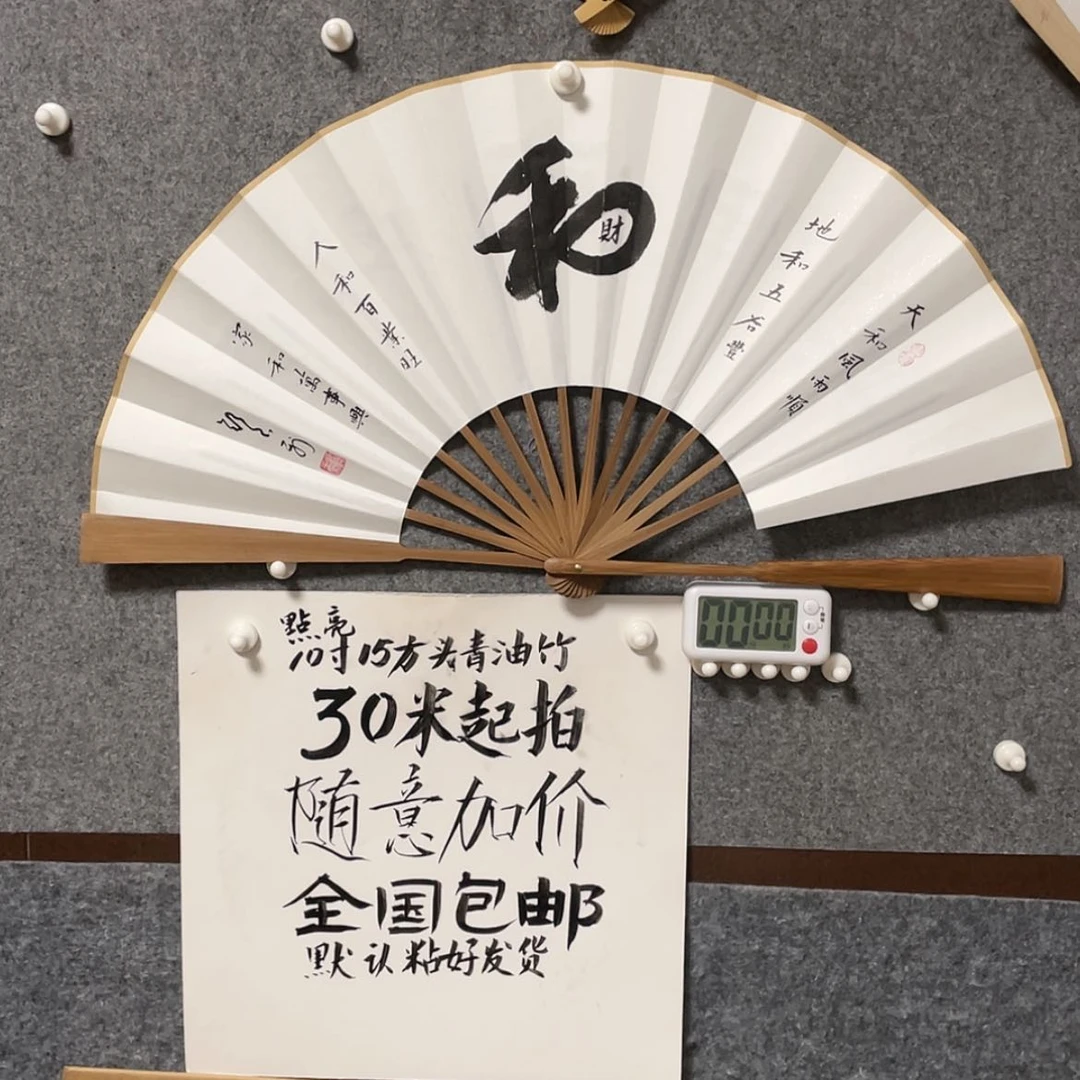 和
財
天和風雨順
地和五谷豐
人和百業旺
家和萬事興
00:00
點亮
10寸15方头青油竹
30米起拍
随意加价
全国包邮
默认粘好发货